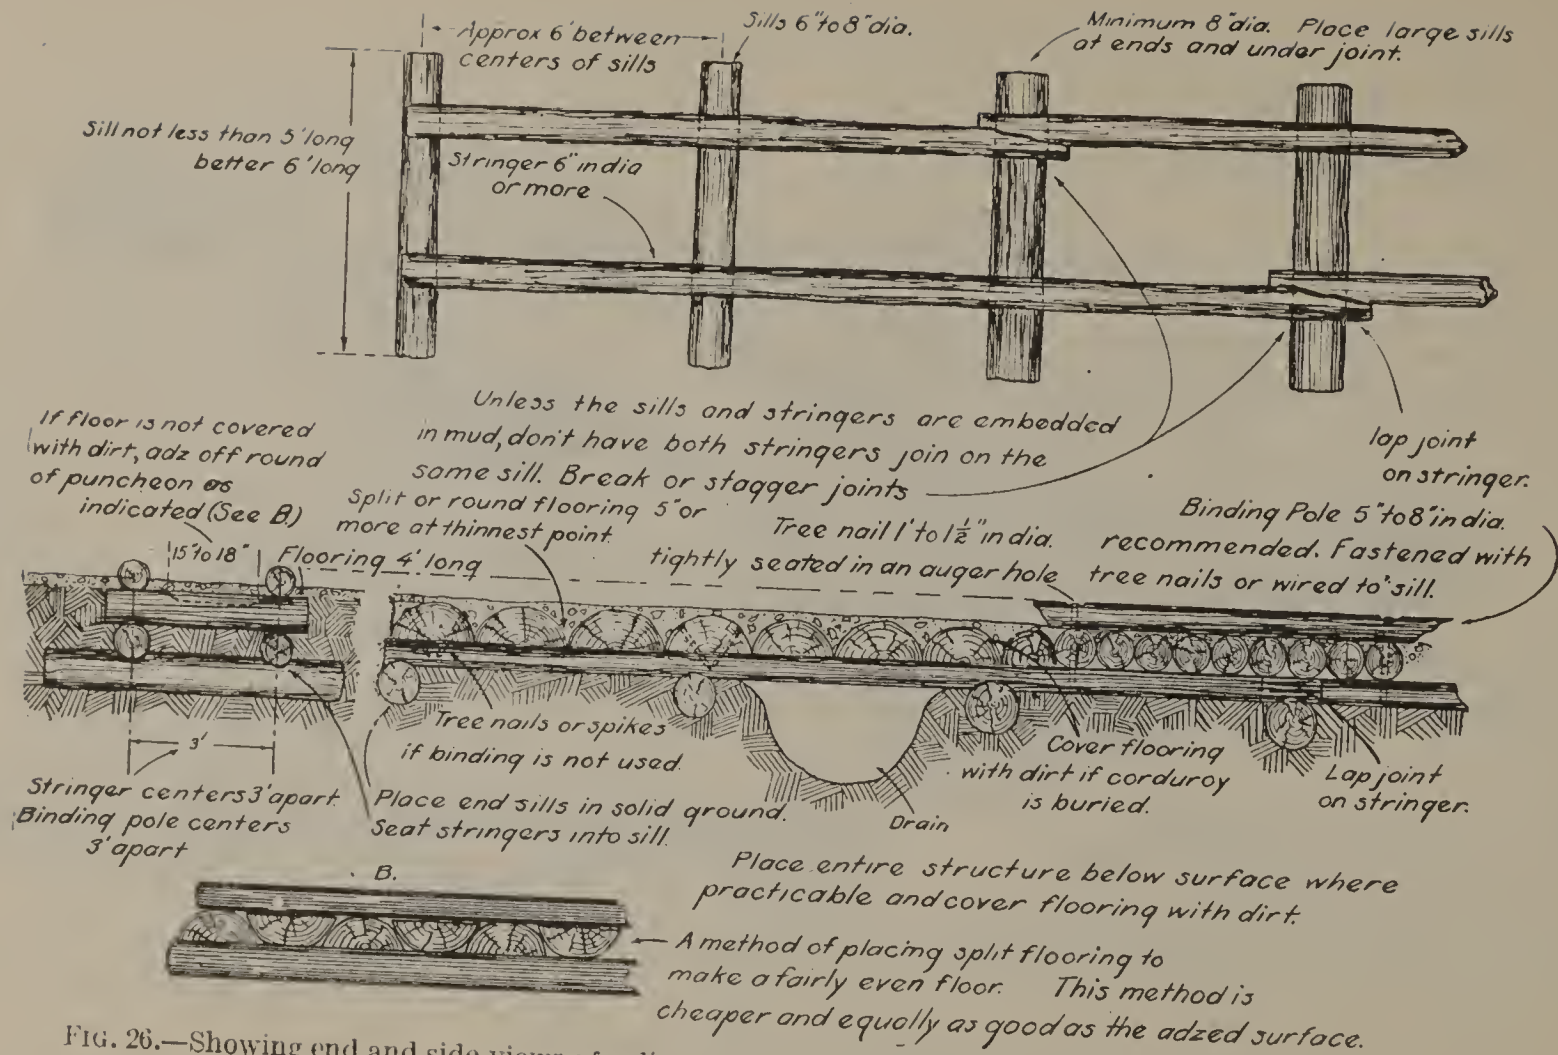 Approx 6' between
centers of sills
Sills 6" to 8" dia.
Minimum 8" dia. Place large sills
at ends and under joint.
Sill not less than 5' long
better 6' long
Stringer 6" in dia
or more
Unless the sills and stringers are embedded
in mud, don't have both stringers join on the
same sill. Break or stagger joints
lap joint
on stringer.
If floor is not covered
with dirt, adz off round
of puncheon as
indicated (See B)
15" to 18"
Flooring 4' long
Split or round flooring 5" or
more at thinnest point.
Tree nail 1" to 1½" in dia.
tightly seated in an auger hole
Binding Pole 5" to 8" in dia.
recommended. Fastened with
tree nails or wired to sill.
3'
Stringer centers 3' apart.
Binding pole centers
3' apart
Tree nails or spikes
if binding is not used.
Place end sills in solid ground.
Seat stringers into sill.
Drain
Cover flooring
with dirt if corduroy
is buried.
Lap joint
on stringer.
Place entire structure below surface where
practicable and cover flooring with dirt.
B.
A method of placing split flooring to
make a fairly even floor. This method is
cheaper and equally as good as the adzed surface.
FIG. 26.—Showing end and side views